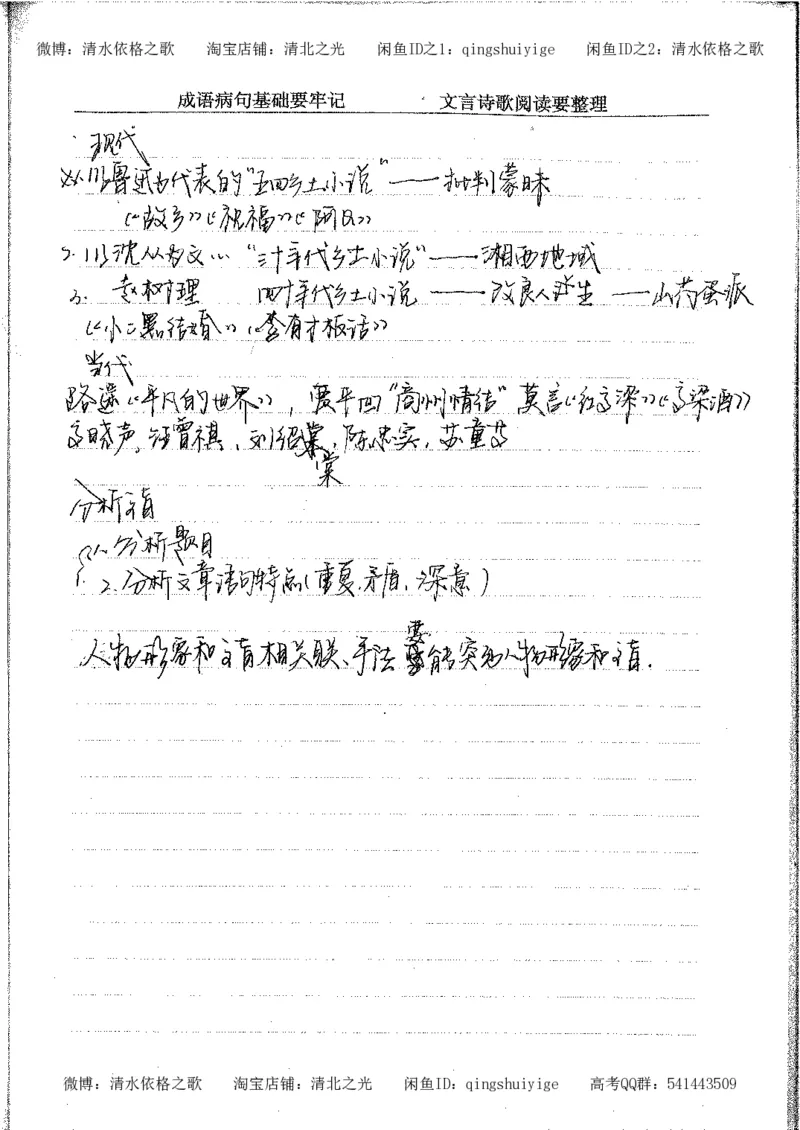 微博：清水依格之歌 淘宝店铺：清北之光 闲鱼ID之1：qingshuiyige 闲鱼ID之2：清水依格之歌
成语病句基础要牢记 文言诗歌阅读要整理
现代
以鲁迅为代表的“五四乡土小说”——批判蒙昧
《故乡》《祝福》《阿Q》
2.以沈从文为…“三十年代乡土小说”——湘西地域
3. 赵树理 四十年代乡土小说——改良人生——山药蛋派
《小二黑结婚》《李有才板话》
当代
路遥《平凡的世界》，贾平凹“商州情结”莫言《红高粱》《高粱酒》
高晓声，汪曾祺，刘绍棠，陈忠实，苏童等
棠
分析主旨
1.分析题目
2.分析文章语句特点（重复.矛盾.深意）
要
人物形象和主旨相关联、手法能突出人物形象和主旨.
微博：清水依格之歌 淘宝店铺：清北之光 闲鱼ID：qingshuiyige 高考QQ群：541443509